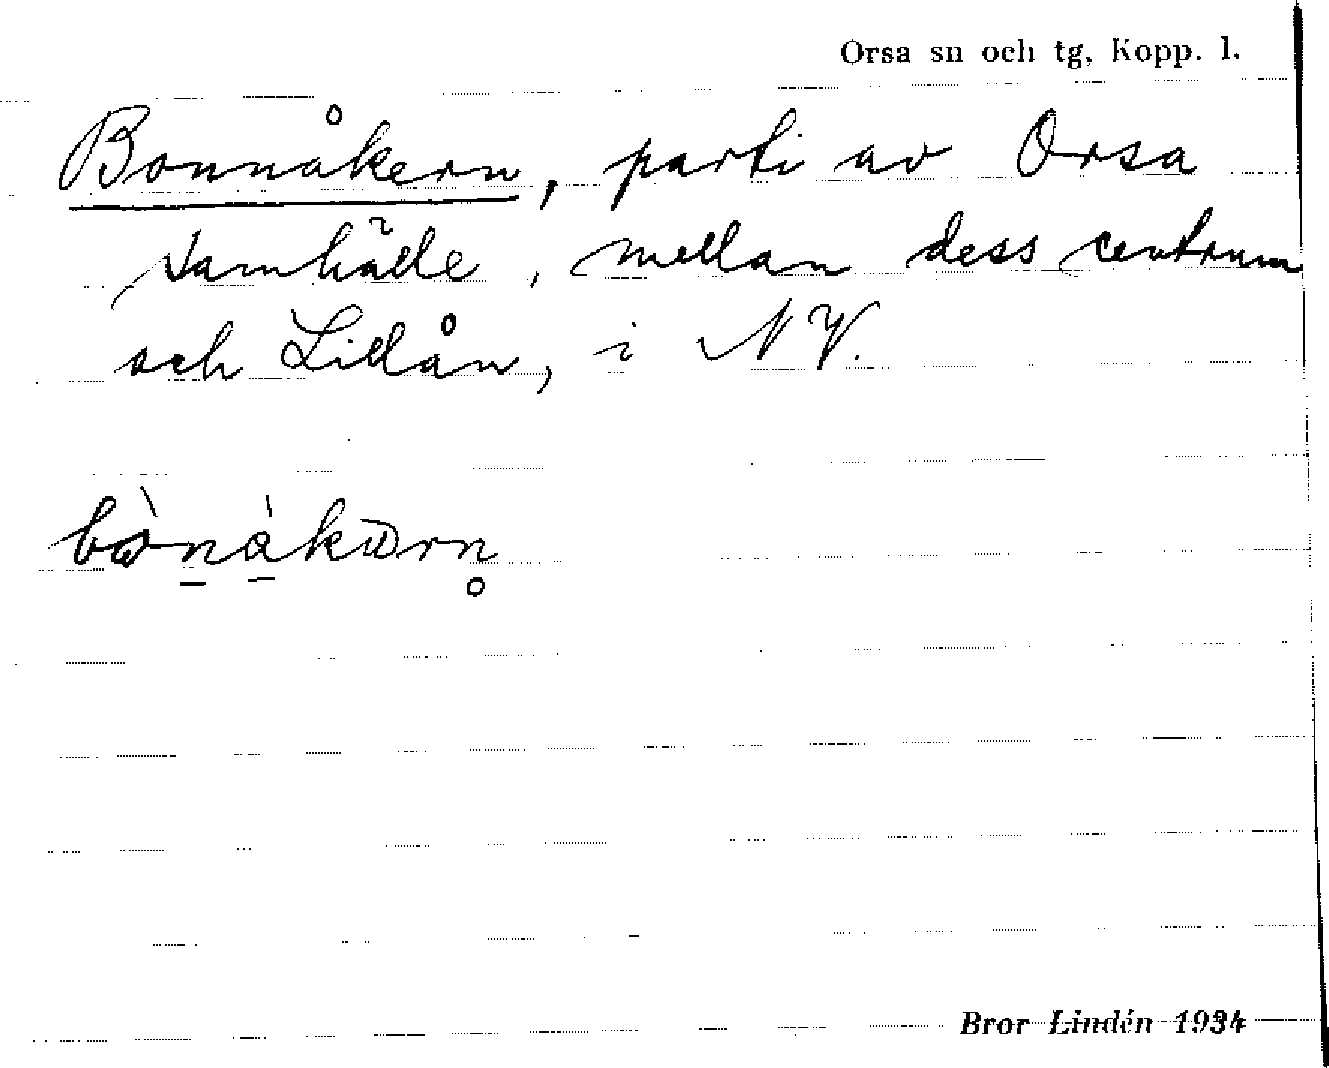 Orsa sn och tg, Kopp. l.
Bonnåkern, parti av Orsa
samhälle, mellan dess centrum
och Lillån, i NV.
Bror Lindén 1934